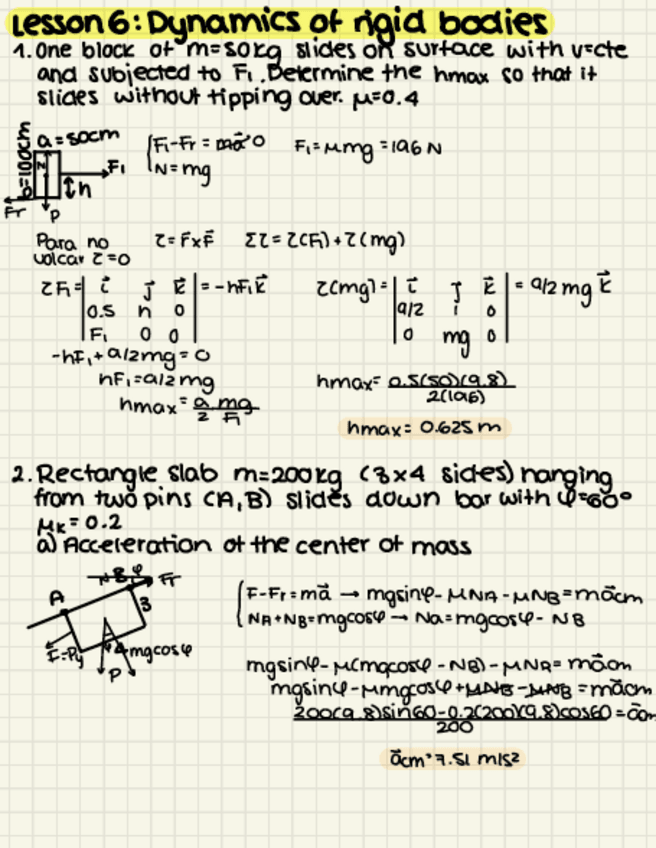 Lesson 6: Dynamics of rigid bodies
1. One block of m=50kg slides on surface with v=cte
and subjected to F₁. Determine the hmax so that it
slides without tipping over. μ=0.4
a=50cm
b=100cm
N
F₁
h
Fr
P
F₁-Fr = ma⃗ 0   F₁=μmg =196 N
N=mg
Para no   τ= r⃗×F⃗   Στ= τ(F₁)+τ(mg)
volcar τ=0
τF₁= | i⃗ j⃗ k⃗ | = -hF₁k⃗   τ(mg)= | i⃗ j⃗ k⃗ | = a/2 mg k⃗
0.5 h 0   a/2 i 0
F₁ 0 0   0 mg 0
-hF₁+a/2mg=0
hF₁=a/2mg   hmax= 0.5(50)(9.8)
2(196)
hmax= a mg
2 F₁
hmax= 0.625 m
2. Rectangle slab m=200kg (3x4 sides) hanging
from two pins (A,B) slides down bar with φ=60°
μk=0.2
a) Acceleration of the center of mass
N B φ Fr
A
3
F=Py
4 mgcosφ
P
F-Fr=ma⃗ → mgsinφ-μNA-μNB=ma⃗cm
NA+NB=mgcosφ → Na=mgcosφ-NB
mgsinφ-μ(mgcosφ-NB)-μNB=ma⃗cm
mgsinφ-μmgcosφ+μNB-μNB=ma⃗cm
200(9.8)sin60-0.2(200)(9.8)cos60 =a⃗cm
200
a⃗cm=7.51 m/s²